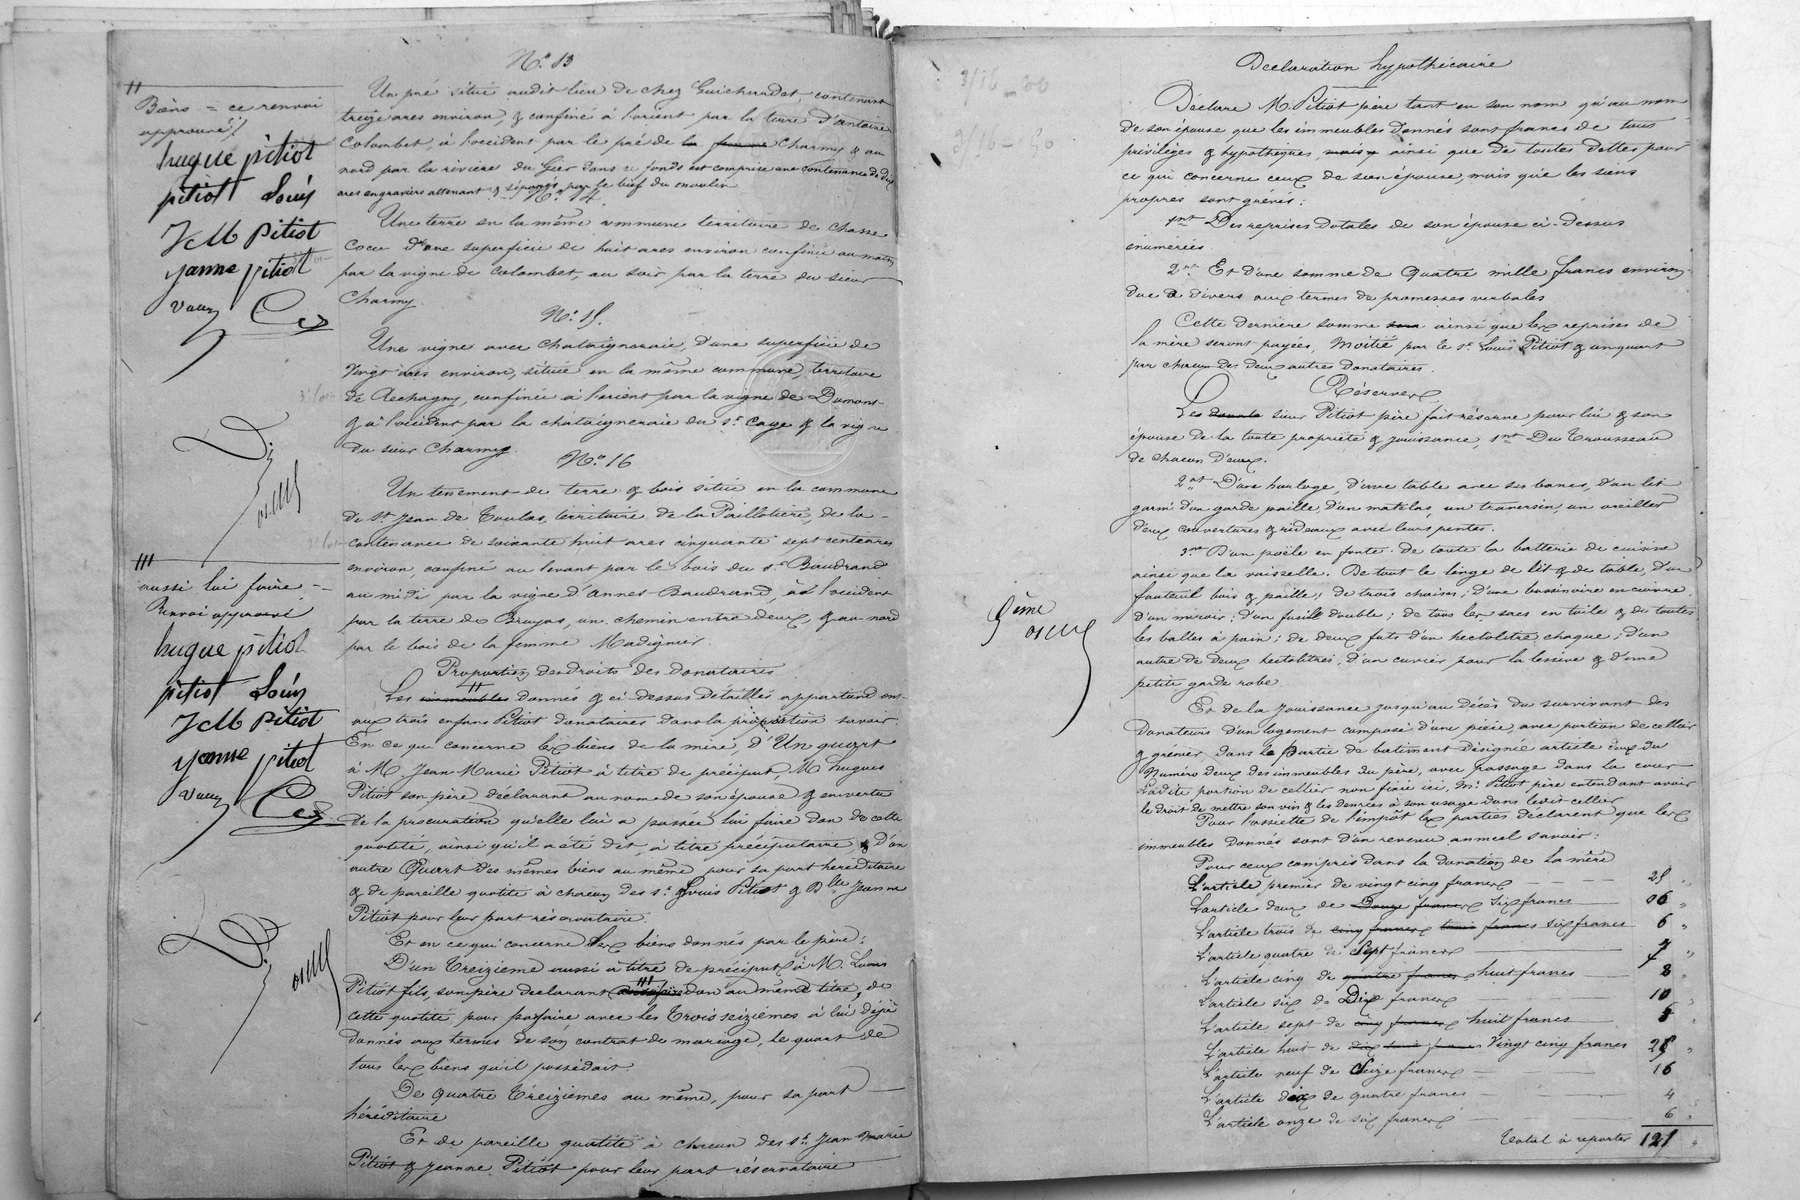 N.° 13
Un pré situé audit lieu de chez Guichardet, contenant
treize ares environ, & confiné à l'orient par la terre d'antoine
Colombet, à l'occident par le pré de la femme Charmy & au
nord par la rivière du Gier dans ce fonds est comprise une contenance de dix
ares engraviers attenant & séparés par le bief du moulin
N.° 14.
Une terre en la même commune territoire de Chasse
Coeur d'une superficie de huit ares environ confinée au matin
par la vigne de Colombet, au soir par la terre du sieur
Charmy.
N.° 15.
Une vigne avec Chataigneraie, d'une superficie de
Vingt ares environ, située en la même commune, territoire
de Rechagny, confinée à l'orient par la vigne de Dumont
& à l'occident par la chataigneraie du s.r Caye & la vigne
du sieur Charmy.
N.° 16
Un tenement de terre & bois situé en la commune
de S.t Jean de Toulas, territoire de la Paillotière, de la
contenance de soixante huit ares cinquante sept centiares
environ, confiné au levant par le bois du s.r Baudrand
au midi par la vigne d'annet Baudrand, à l'occident
par la terre de Bruyas, un chemin entre deux, & au nord
par le bois de la femme Madignier.
Proportion des droits des Donataires
Les immeubles donnés & ci-dessus détaillés appartiendront
aux trois enfans Pitiot donataires dans la proportion savoir.
En ce qui concerne les biens de la mère, d'Un quart
à M. Jean Marie Pitiot à titre de préciput, M. hugues
Pitiot son père déclarant au nom de son épouse & en vertu
de la procuration qu'elle lui a passée lui faire don de cette
quotité, ainsi qu'il a été dit, à titre préciputaire, & d'un
autre Quart des mêmes biens au même pour sa part héréditaire
& de pareille quotité à chacun des s.r Louis Pitiot & D.lle Jeanne
Pitiot pour leur part réservataire.
Et en ce qui concerne les biens donnés par le père:
D'un Treizième aussi à titre de préciput à M. Louis
Pitiot fils, son père déclarant don au même titre, de
cette quotité pour parfaire avec les Trois seizièmes à lui déjà
donnés aux termes de son contrat de mariage, le quart de
tous les biens qu'il possédait.
De Quatre Treizièmes au même, pour sa part
héréditaire
Et de pareille quotité à chacun des s.r Jean Marie
Pitiot & Jeanne Pitiot pour leur part réservataire
II
Biens = ce renvoi
approuvé!
hugue pitiot
pitiot Louis
JcM Pitiot
janne pitiot
III
aussi lui faire
Renvoi approuvé
hugue pitiot
pitiot Louis
JcM Pitiot
janne pitiot
Déclaration hypothécaire
Déclare M. Pitiot père tant en son nom qu'au nom
de son épouse que les immeubles donnés sont francs de tous
privilèges & hypothèques, mais ainsi que de toutes dettes pour
ce qui concerne ceux de son épouse, mais que les siens
propres sont grévés:
1.nt Des reprises dotales de son épouse ci-dessus
énumérées.
2.nt Et d'une somme de Quatre mille francs environ
due à divers aux termes de promesses verbales
Cette dernière somme sera ainsi que les reprises de
la mère seront payées, Moitié par le s.r Louis Pitiot & un quart
par chacun des deux autres Donataires.
Réserves
Le sieur Pitiot père fait réserve pour lui & son
épouse de la toute propriété & jouissance, 1.nt Du Trousseau
de chacun d'eux.
2.nt D'une horloge, d'une table avec ses bancs, d'un lit
garni d'un garde paille d'un matelas, un traversin, un oreiller
deux couvertures & rideaux avec leurs pentes.
3.nt D'un poêle en fonte. de toute la batterie de cuisine
ainsi que la vaisselle. De tout le linge de lit & de table, d'un
fauteuil bois & paille; de trois chaises; d'une bassinoire en cuivre
d'un miroir; d'un fusil double; de tous les sacs en toile & de toutes
les balles à pain; de deux futs d'un hectolitre chaque; d'un
autre de deux hectolitres; d'un cuvier pour la lessive & d'une
petite garde robe
Et de la Jouissance jusqu'au décès du survivant des
Donateurs d'un logement composé d'une pièce, avec portion de cellier
& grenier, dans la partie de batiment désignée article deux du
Numéro deux des immeubles du père, avec passage dans la cour
Ladite portion de cellier non fixée ici, M.r Pitiot père entendant avoir
le droit de mettre son vin & les denrées à son usage dans ledit cellier
Pour l'assiette de l'impôt les parties déclarent que les
immeubles donnés sont d'un revenu annuel savoir:
Pour ceux compris dans la donation de la mère
L'article premier de vingt cinq francs 25 "
L'article deux de Douze francs six francs 06 "
L'article trois de cinq francs trois francs six francs 6 "
L'article quatre de Sept francs 7 "
L'article cinq de quatre francs huit francs 8 "
L'article six de Dix francs 10 "
L'article sept de cinq francs huit francs 8 "
L'article huit de Vingt cinq francs 25 "
L'article neuf de Seize francs 16
L'article dix de quatre francs 4
L'article onze de six francs 6 "
Total à reporter 121 "